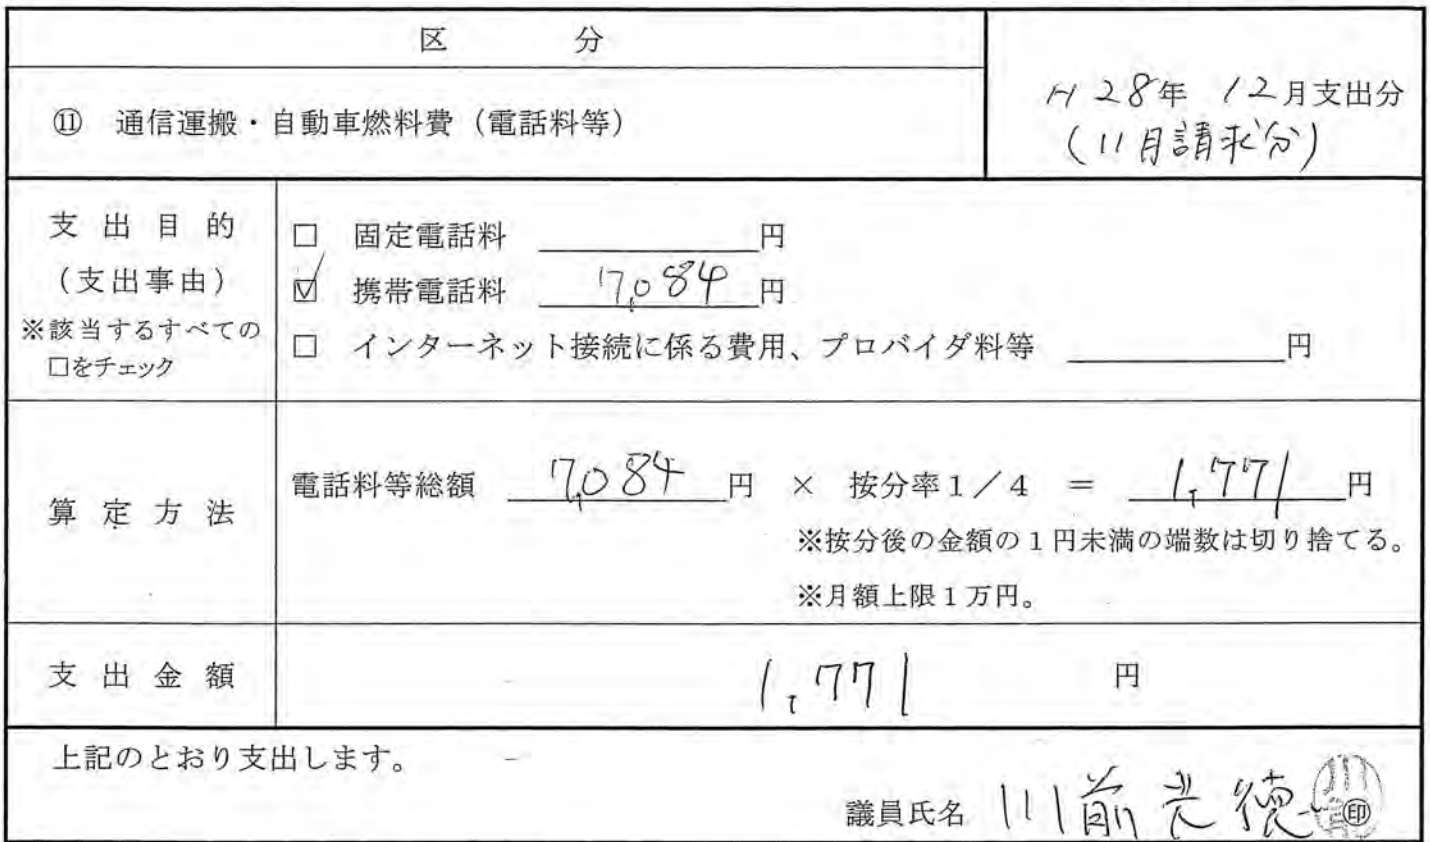 区 分
⑪ 通信運搬・自動車燃料費（電話料等）
H28年 12月支出分
（11月請求分）
支出目的
（支出事由）
※該当するすべての
□をチェック
□ 固定電話料 円
☑ 携帯電話料 7,084 円
□ インターネット接続に係る費用、プロバイダ料等 円
算定方法
電話料等総額 7,084 円 × 按分率1／4 ＝ 1,771 円
※按分後の金額の1円未満の端数は切り捨てる。
※月額上限1万円。
支出金額
1,771 円
上記のとおり支出します。
議員氏名 川前 徳 ㊞